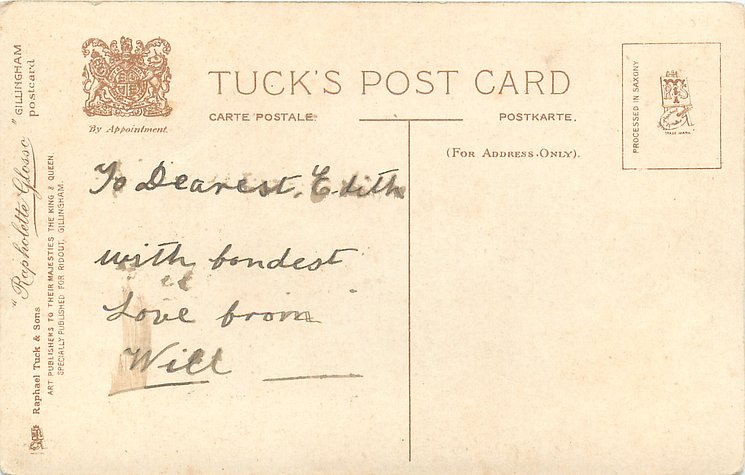 TUCK'S POST CARD
CARTE POSTALE.
POSTKARTE.
(FOR ADDRESS ONLY).
By Appointment.
PROCESSED IN SAXONY
TRADE MARK
"Rapholette Glosso" GILLINGHAM
postcard
Raphael Tuck & Sons
ART PUBLISHERS TO THEIR MAJESTIES THE KING & QUEEN.
SPECIALLY PUBLISHED FOR RIDOUT, GILLINGHAM.
To Dearest Edith
with fondest
Love from
Will